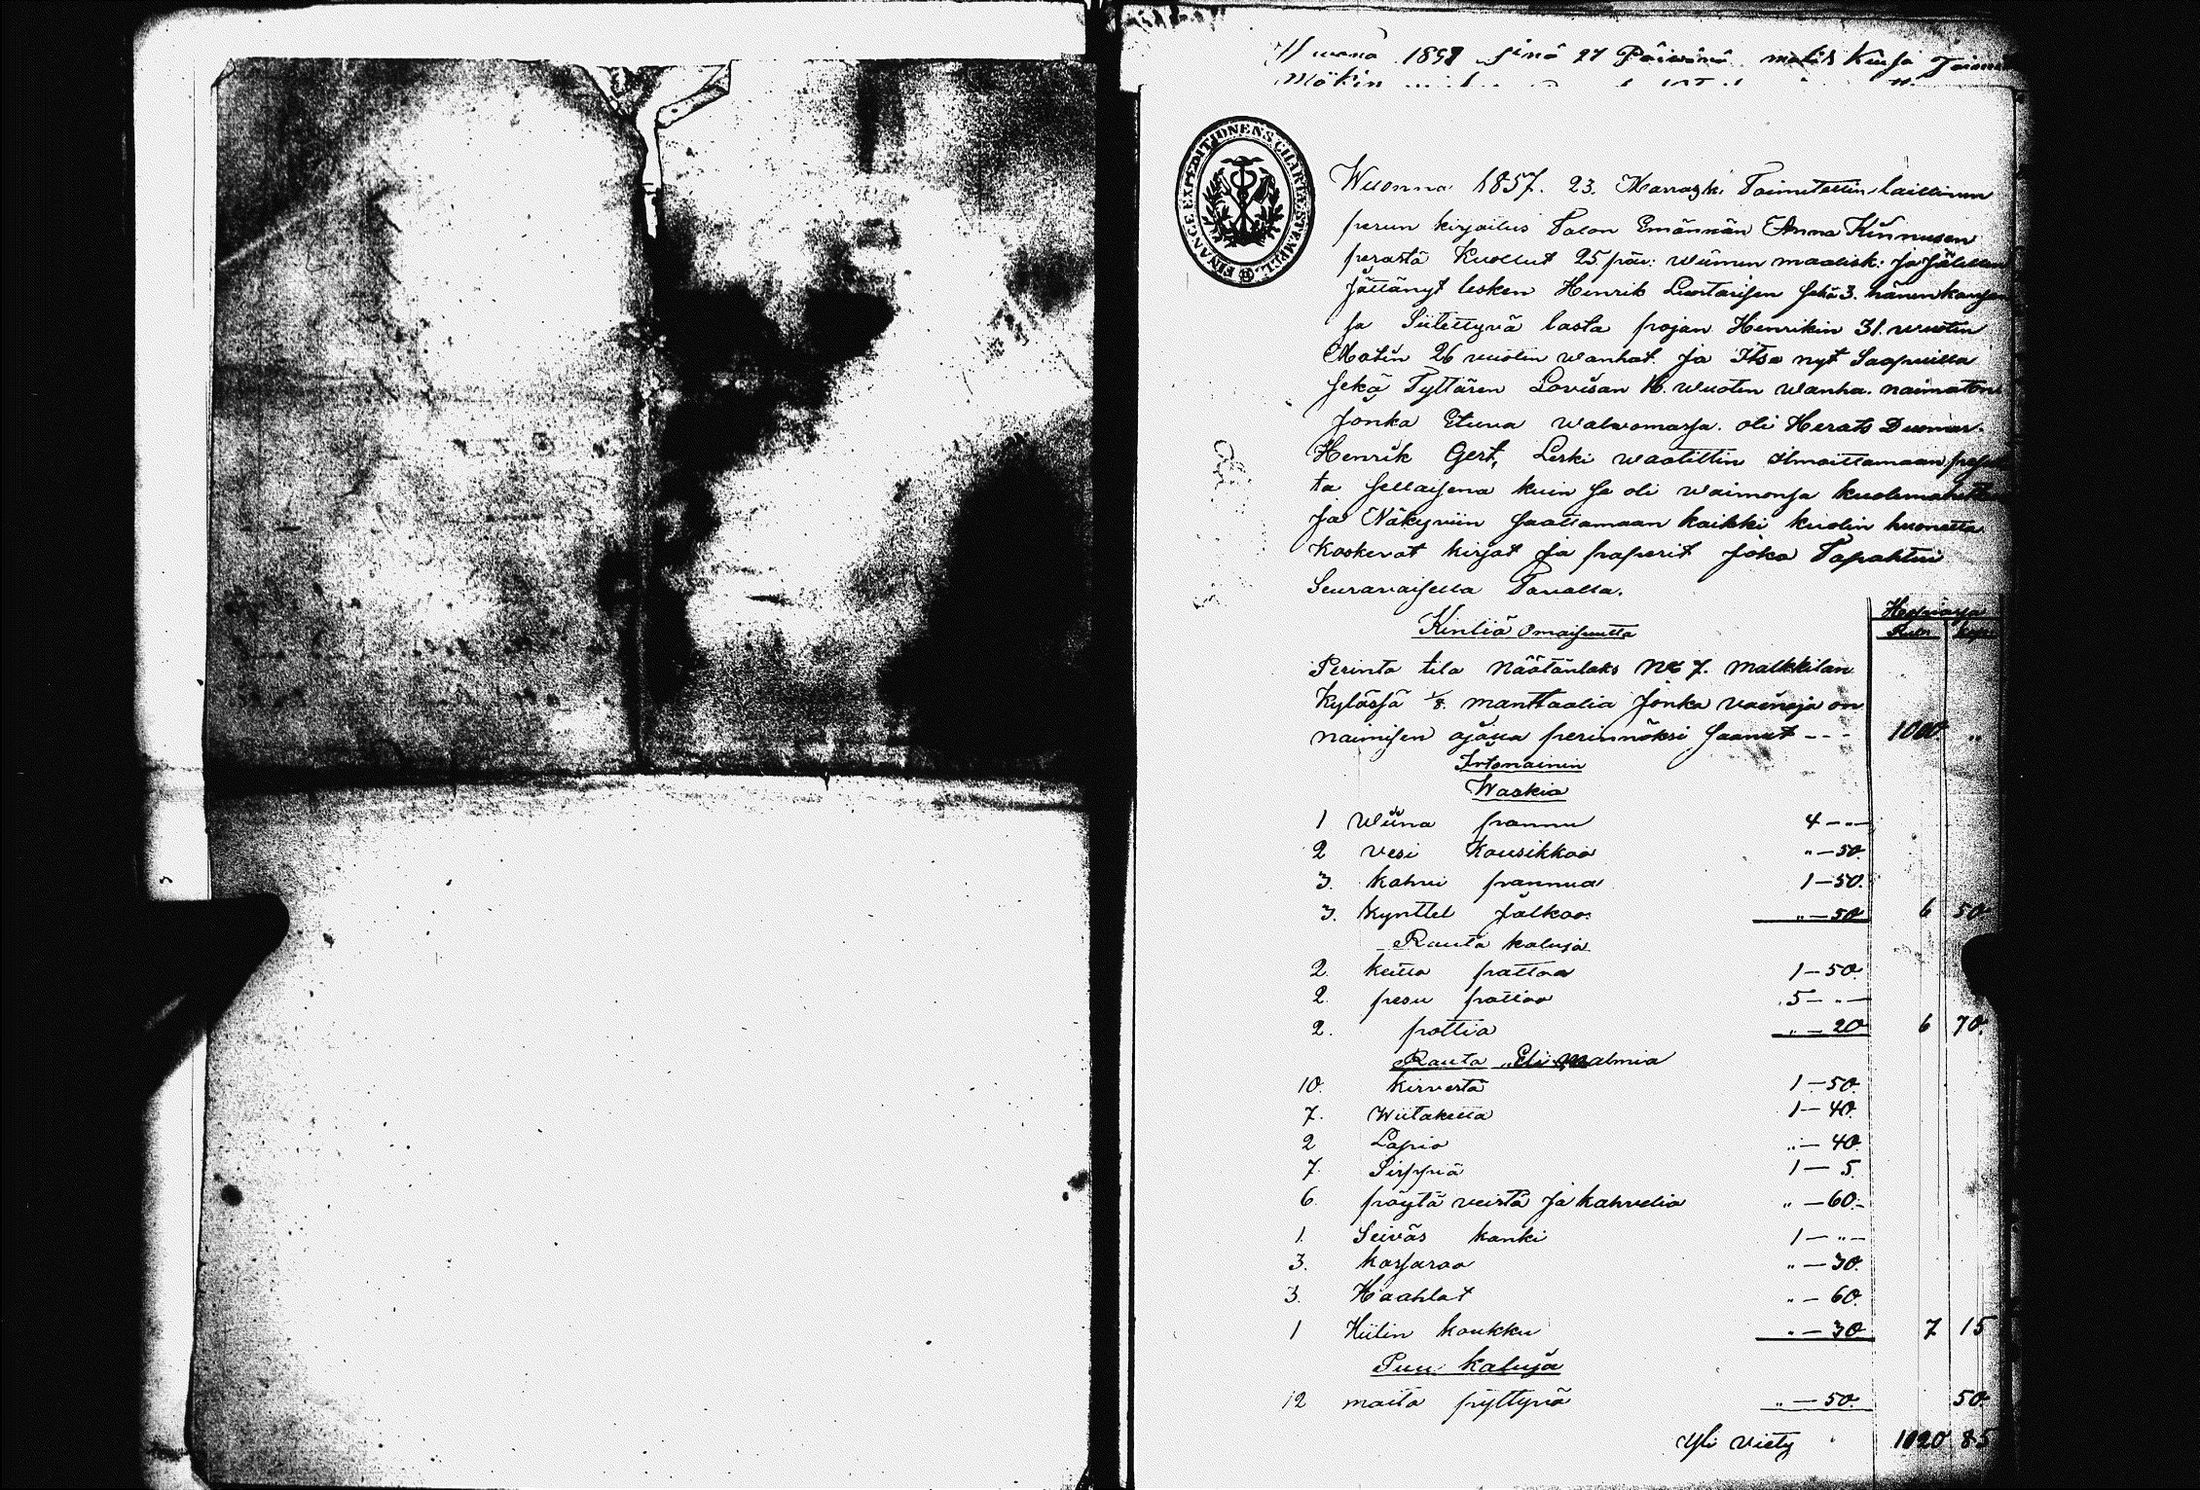 Wuonna 1858 sinä 27 Päivänä
FINANCE EXPEDITIONENS CHARTÆ STEMPEL
Wuonna 1857. 23. Marrask: Toimitettin laillinen
perun kirjoitus Talon Emännän Anna Kinnusen
perästä Kuollut 25 päiv: wiimen maalisk: ja jälkeen
jättänyt lesken Henrik Luostarisen sekä 3. hänen kansan
ja Siitettyvä lasta pojan Henrikin 31. wuotin
Matin 26 wuotin wanhat ja Itse nyt Saapuilla
sekä Tyttären Lovisan 16. wuotin wanha. naimaton
jonka Etuva walvomassa. oli Herats Duomar.
Henrik Gert, Leski waatittin ilmoittamaan
ta sellaisena kuin se oli waimonsa
ja Näkyviin Saattamaan kaikki kuolin huonetta
Koskevat kirjat ja paperit joka Tapahtui
Seuravaisella Tavalla.
Kintiä Omaisuutta
Ruby Kop
Perinto tila Näätänlaks No 7. Malkkilan
Kylässä 1/8. manttaalia jonka vainaja on
naimisen ajalla perinnöksi Saanut - - - 1000 "
Irtonainen
Waskia
1 Wiina pannu 4 - " -
2 vesi Kousikkaa " - 50.
3. kahvi pannua 1 - 50.
3. kynttel jalkaa. " - 50 6 50
Rauta kaluja
2. keitto pattaa 1 - 50.
2. pesu pattaa 5 - " -
2. pottia " - 20 6 70.
Rauta Eli Malmia
10. kirvestä 1 - 50.
7. Wiitaketta 1 - 40.
2 Lapio " - 40.
7. Sirppiä 1 - 5
6. pöytä veistä ja kahvelia " - 60.
1. Seiväs kanki 1 - " -
3. kassaraa " - 30.
3. Haahlat " - 60.
1 Hiilin koukku " - 30 7 15
Puu kaluja
12 maito pyttyvä " - 50. 50.
Yli viety 1020 85